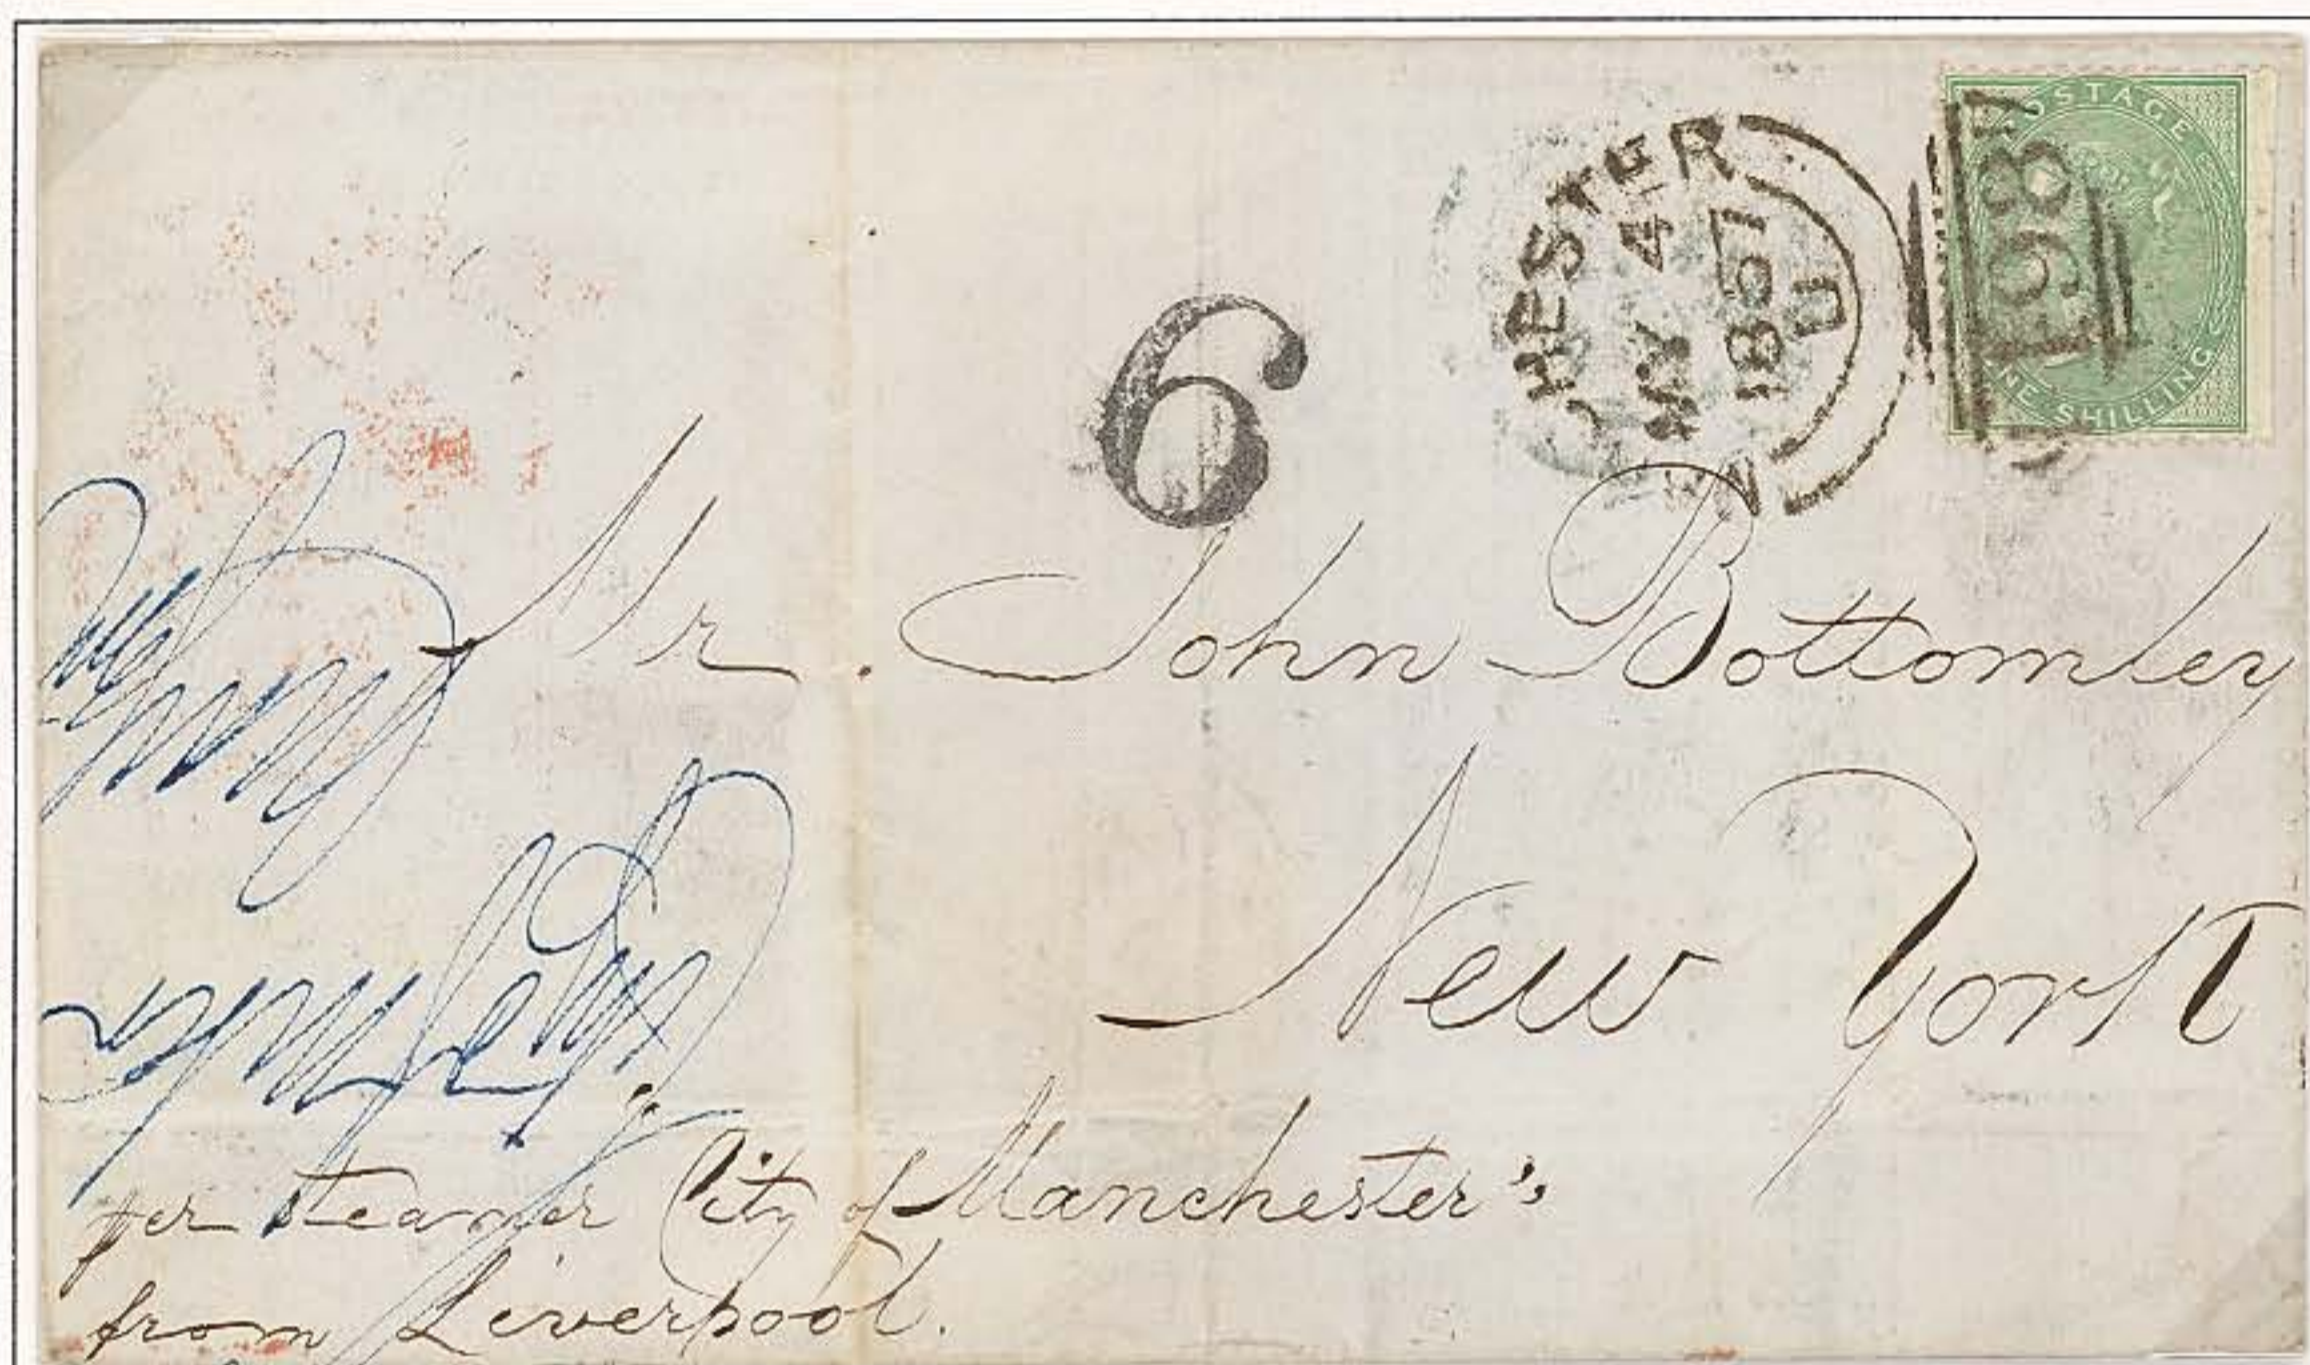 POSTAGE
498
ONE SHILLING
MANCHESTER
MY 4
1857
U
6
Mr. John Bottomley
New York
per steamer City of Manchester"
from Liverpool.